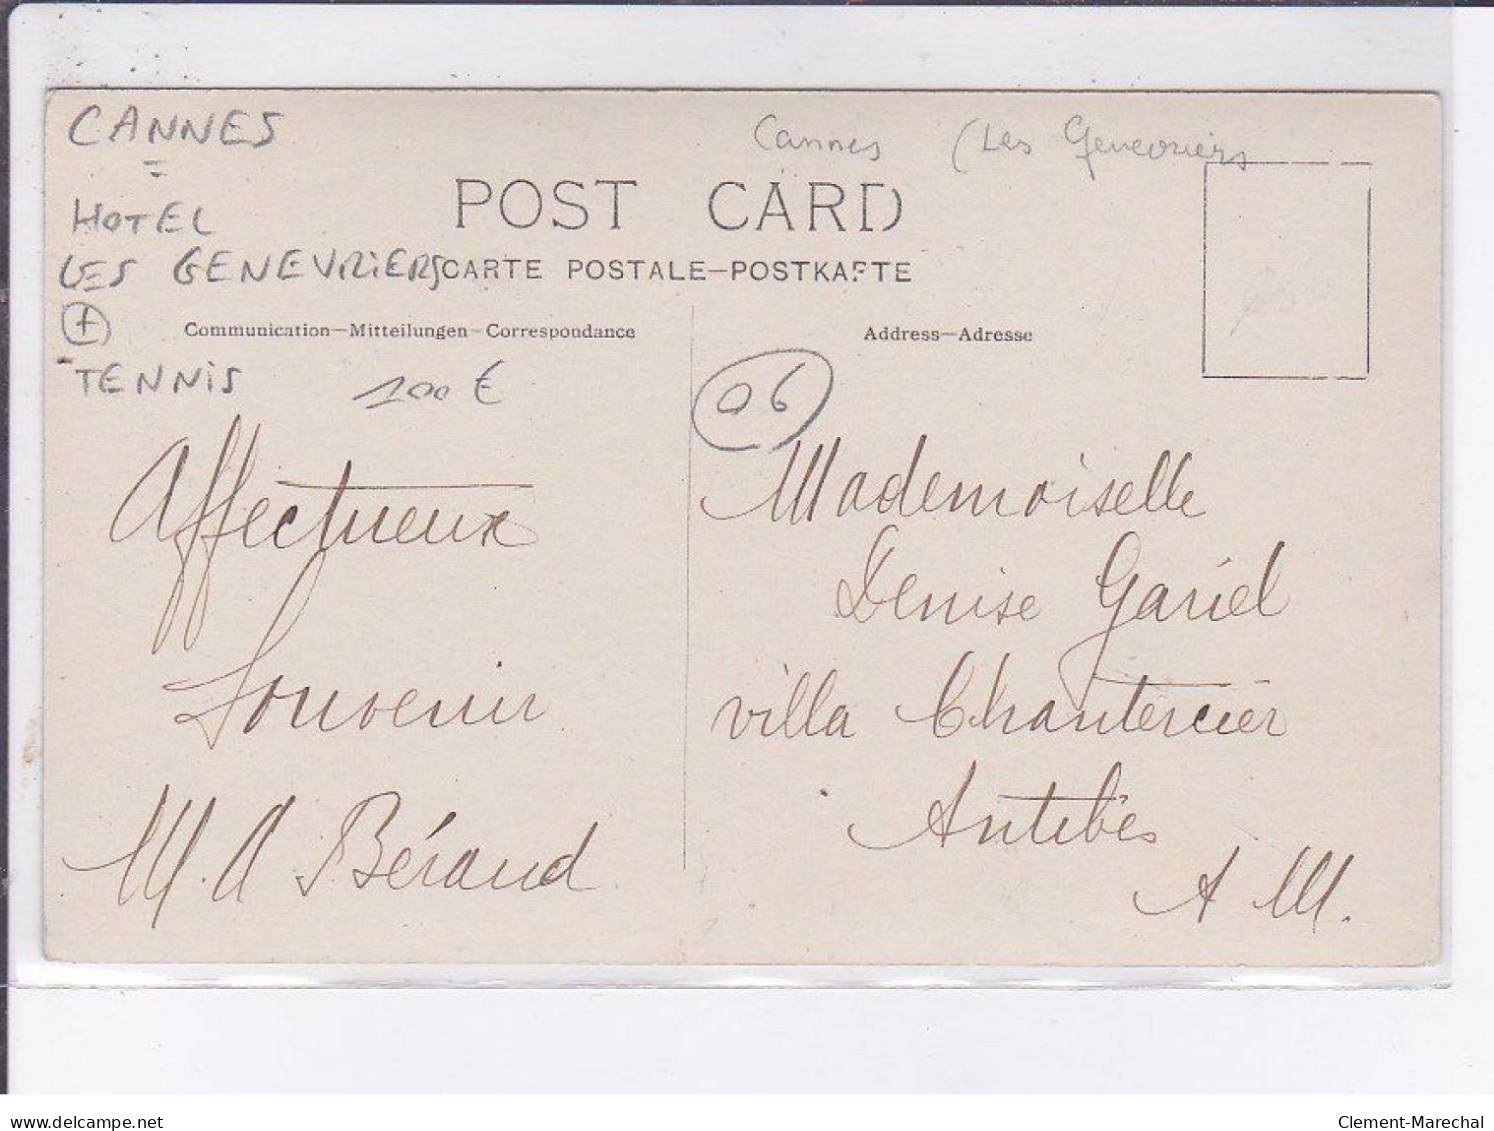 CANNES
Cannes (Les Genevriers
POST CARD
HOTEL
LES GENEVRIERS
CARTE POSTALE—POSTKARTE
+
Communication—Mitteilungen—Correspondance
Address—Adresse
TENNIS
100 €
06
Affectueux
Souvenir
M. A Béraud
Mademoiselle
Denise Gariel
villa Chantercier
Antibes
A M.
delcampe.net
Clement-Marechal